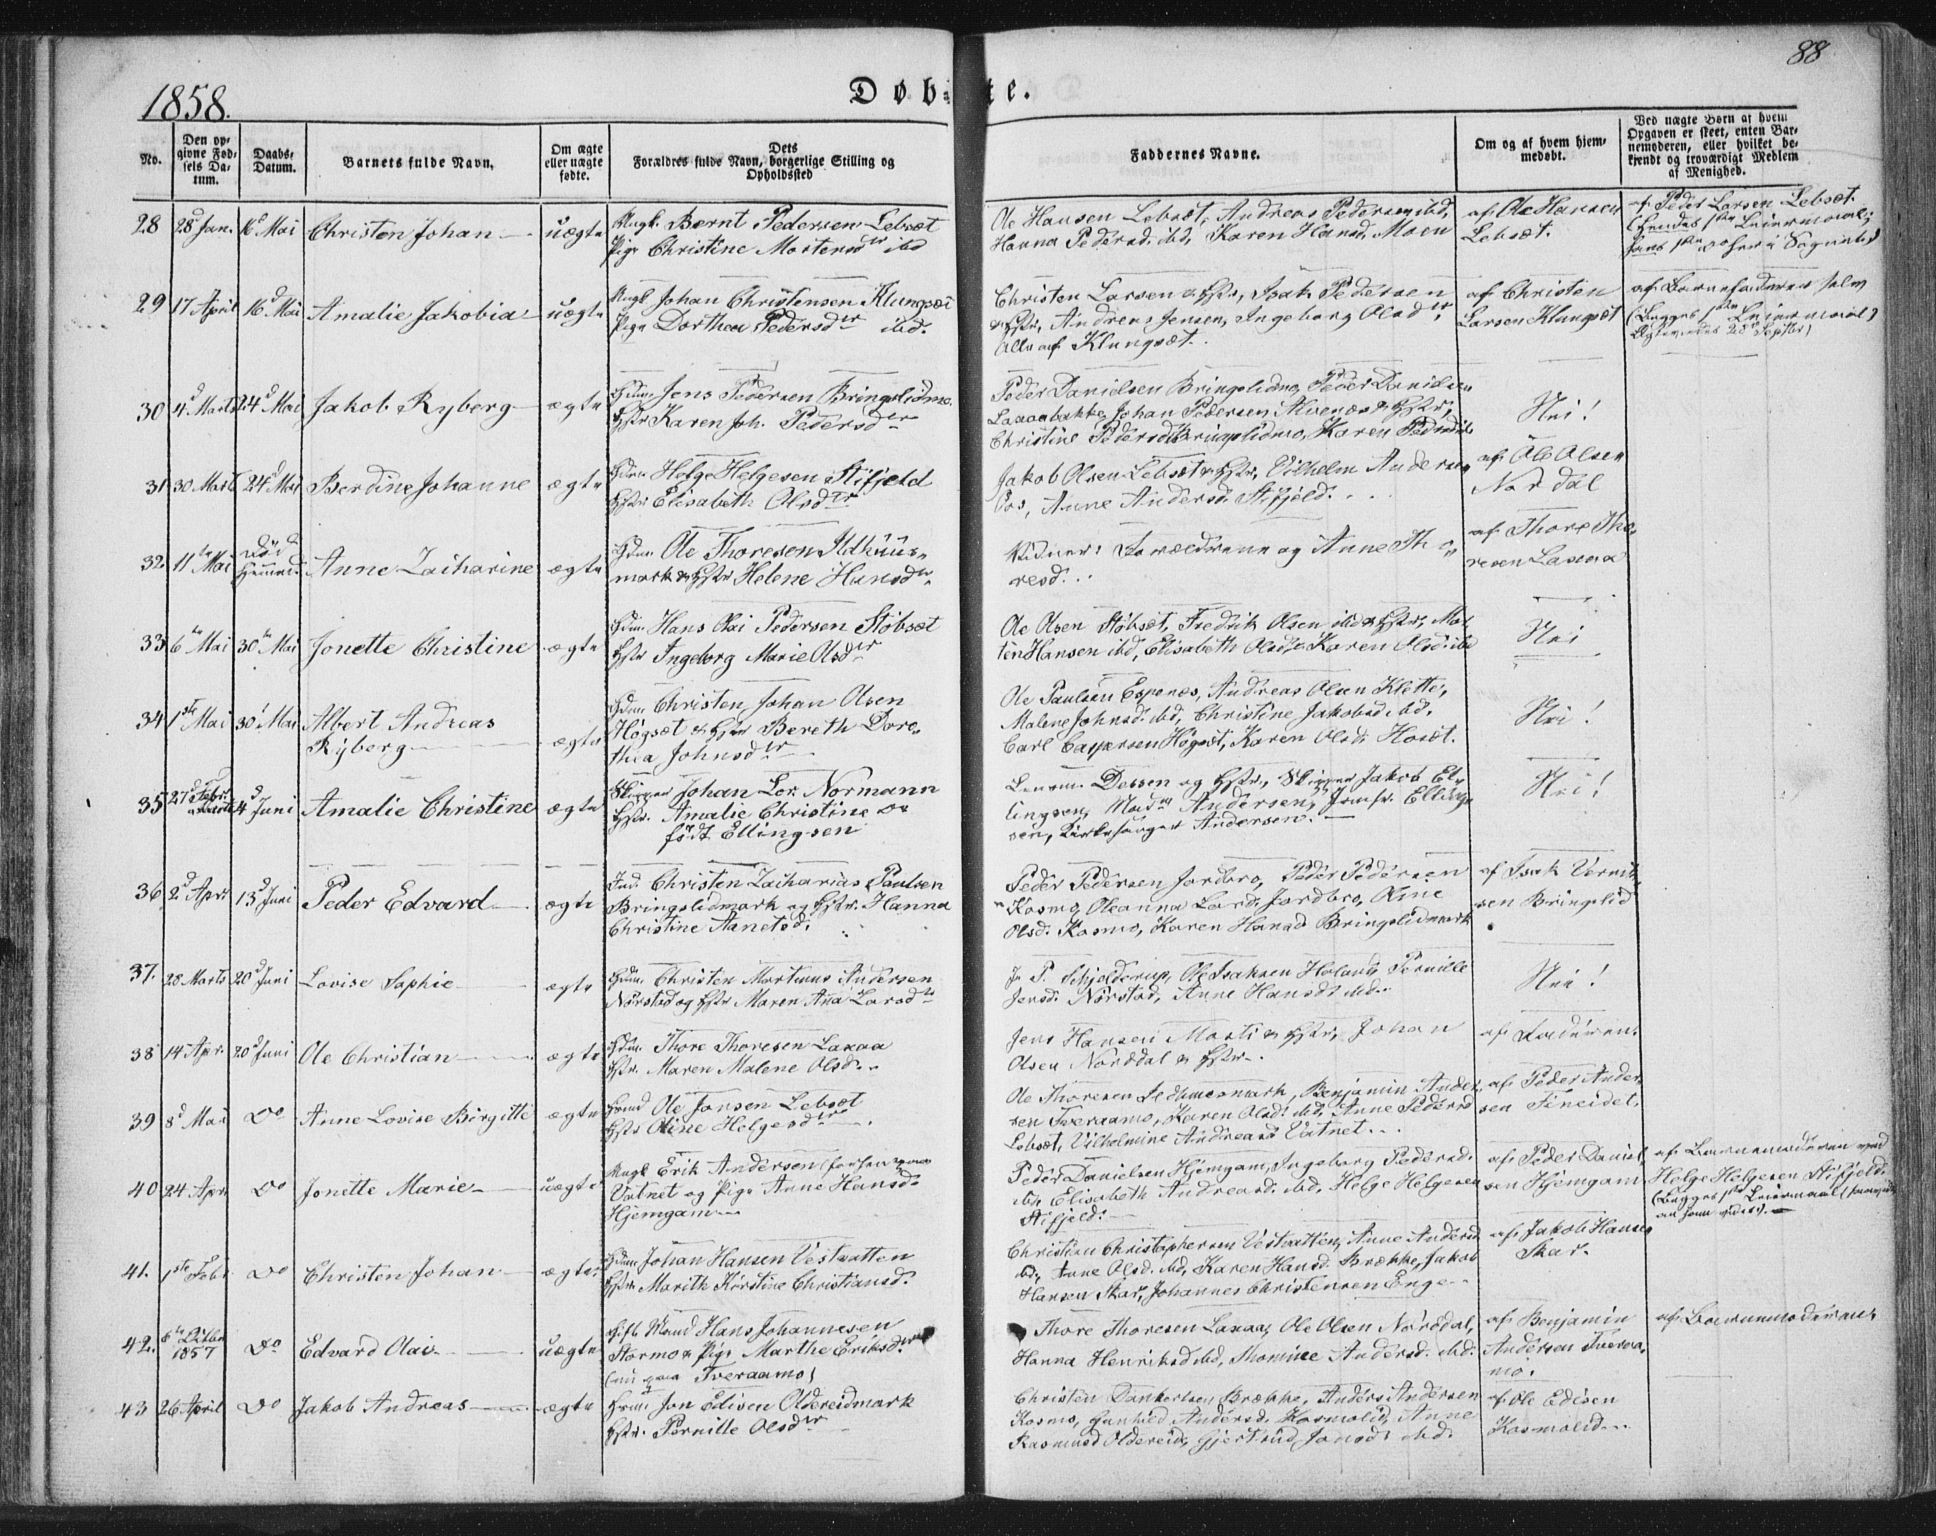 88
1858.
Døbte.
No.
Den opgivne Fødsels Datum.
Daabs-Datum.
Barnets fulde Navn.
Om ægte eller uægte fødte.
Dets Forældres fulde Navn, borgerlige Stilling og Opholdssted
Faddernes Navne.
Om og af hvem hjemmedøbt.
Ved uægte Børn af hvem Opgaven er skeet, enten Barnemoderen, eller hvilket bekjendt og troværdigt Medlem af Menighed.
28 28d Jan. 16d Mai Christen Johan uægte
Ungk. Bernt Pedersen Lebsæt
Pige Christine Mortensdr ibd
Ole Hansen Lebsæt, Andreas Pedersen ibd,
Hanna Pedersd. ibd, Karen Hansd. Moen
af Ole Hansen
Lebsæt.
af Peder Larsen Lebsæt.
29 17 April 16d Mai Amalie Jakobia uægte
Ungk. Johan Christensen Klungsæt
Pige Dorthea Pedersdr ibd.
Christen Larsen & Hstr, Isak Pedersen
& Hstr, Andreas Jensen, Ingeborg Olsdr
Alle af Klungsæt.
af Christen
Larsen Klungsæt
af Barnefaderen selv
(Begges 1ste Leiermaal)
30 4d Marts 24d Mai Jakob Ryberg ægte
Gdm. Jens Pedersen Bringslidm.
Hstr Karen Joh. Pedersdr
Peder Danielsen Bringslidm, Peder Danielsen
Laxaabakke, Johan Pedersen & Hstr,
Christine Pedersd. Bringslidm, Karen Pedersd. ib.
Nei!
31 30 Marts 24d Mai Berdine Johanne ægte
Gdm. Helge Helgesen Stifjeld
Hstr Elisabeth Olsdtr
Jakob Olsen Lebsæt & Hstr, Vilhelm Andersen
Os, Anne Andersd. Stifjeld.
af Ole Olsen
Nordal
32. 11te Mai Død Hjemmed. Anne Zacharine ægte
Gdm. Ole Thoresen Ildhuus-
mark & Hstr Helene Hansdr
Vidner: Forældrene og Anne Tho-
resd.
af Thore Tho-
resen Laxaa
33 6te Mai 30te Mai Jonette Christine ægte
Gdm. Hans Olai Pedersen Støbsæt
Hstr Ingeborg Marie Olsdr
Ole Olsen Støbsæt, Fredrik Olsen ibd & Hstr, Mor-
ten Hansen ibd, Elisabeth Olsd, Karen Olsd. ibd
Nei
34 1ste Mai 30te Mai Albert Andreas
Ryberg ægte
Gdm. Christen Johan Olsen
Høgsæt & Hstr Bereth Dore-
thea Johnsdr
Ole Paulsen Espenes, Andreas Olsen Klette,
Malene Johnsd. ibd, Christine Jakobsd. ibd.
Carl Caspersen Høgsæt, Karen Olsd.
Nei!
35 27d Febr. 4d Juni Amalie Christine ægte
Skipper Johan Lor. Normann
Hstr. Amalie Christine
født Ellingsen
Lensm. Dessen og Hstr, Skipper Jakob El-
lingsen, Madm Andersen, Jomfr. Elling-
sen, Kirkesanger Andersen.
Nei!
36 2d April 13d Juni Peder Edvard ægte
Ind. Christen Zacharias Paulsen
Bringslidmark og Hstr. Hanna
Christine Aanetsd.
Peder Pedersen Jordbro, Peder Pedersen
Kosmo, Oleanna Larsd. Jordbro, Oline
Olsd. Kosmo, Karen Hansd. Bringslidmark
af Isak Vernik-
sen Bringslid
37. 28 Marts 20d Juni Lovise Sophie ægte
Gdm. Christen Martinus Andersen
Nørstad og Hstr Maren Ana Larsdtr
J. P. Schjelderup, Ole Isaksen Holand, Pernille
Jensd. Nørstad, Anne Hansdr ibd.
Nei!
38 14 Apr. 20d Juni Ole Christian ægte
Gdm. Thore Thoresen Laxaa
Hstr. Maren Malene Olsd.
Jens Hansen Mosti & Hstr, Johan
Olsen Norddal & Hstr.
af Faderen.
39 8d Mai Do Anne Lovise Birgitte ægte
Ole Jonsen Lebsæt
Hstr Oline Helgesdr
Ole Thoresen Ildhuusmark, Benjamin Ander-
sen Tveraamo, Karen Olsd. ibd, Anne Pedersd
Lebsæt, Vilhelmine Andreasd Vatnet
af Peder Ander-
sen Fineidet.
40 24 Apr. Do Jonette Marie uægte
Ungk Erik Andersen
Vatnet og Pige Anne Hansd.
Hjemgam
Peder Danielsen Hjemgam, Ingeborg Pedersd.
ibd, Elisabeth Andreasd. ibd, Helge Helgesen
Stifjeld.
af Peder Daniel-
sen Hjemgam
af Barnemoderen ved
Helge Helgesen Stifjeld.
41. 1ste Febr Do Christen Johan ægte
Gdm. Johan Hansen Vestvatten
Hstr. Marith Kirstine Christiansd.
Christian Christophersen Vestvatten, Anne Andersd
ibd, Anne Olsd. ibd, Karen Hansd. Brække, Jakob
Hansen Skar, Johannes Christensen Enge
af Jakob Hansen
Skar.
42. 6te 1857 Do Edvard Olai uægte
Gift Mand Hans Johannesen
Stormo & Pige Marthe Eriksdr
Tveraamo)
Thore Thoresen Laxaa, Ole Olsen Norddal,
Hanna Henriksd. ibd, Thomine Andersd. ibd.
af Benjamin
Andersen Tveraa-
mo.
af Barnemoderen.
43 26 April Do Jakob Andreas ægte
Jon Edisen Oldereidmark
Hstr. Pernille Olsdr
Christen Dankertsen Brække, Anders Andersen
Kosmo, Gunhild Andersd. Kosmolid, Anne
Rasmusd Oldereid, Gjertrud Jonsd. ibd.
af Ole Edisen
Kosmolid